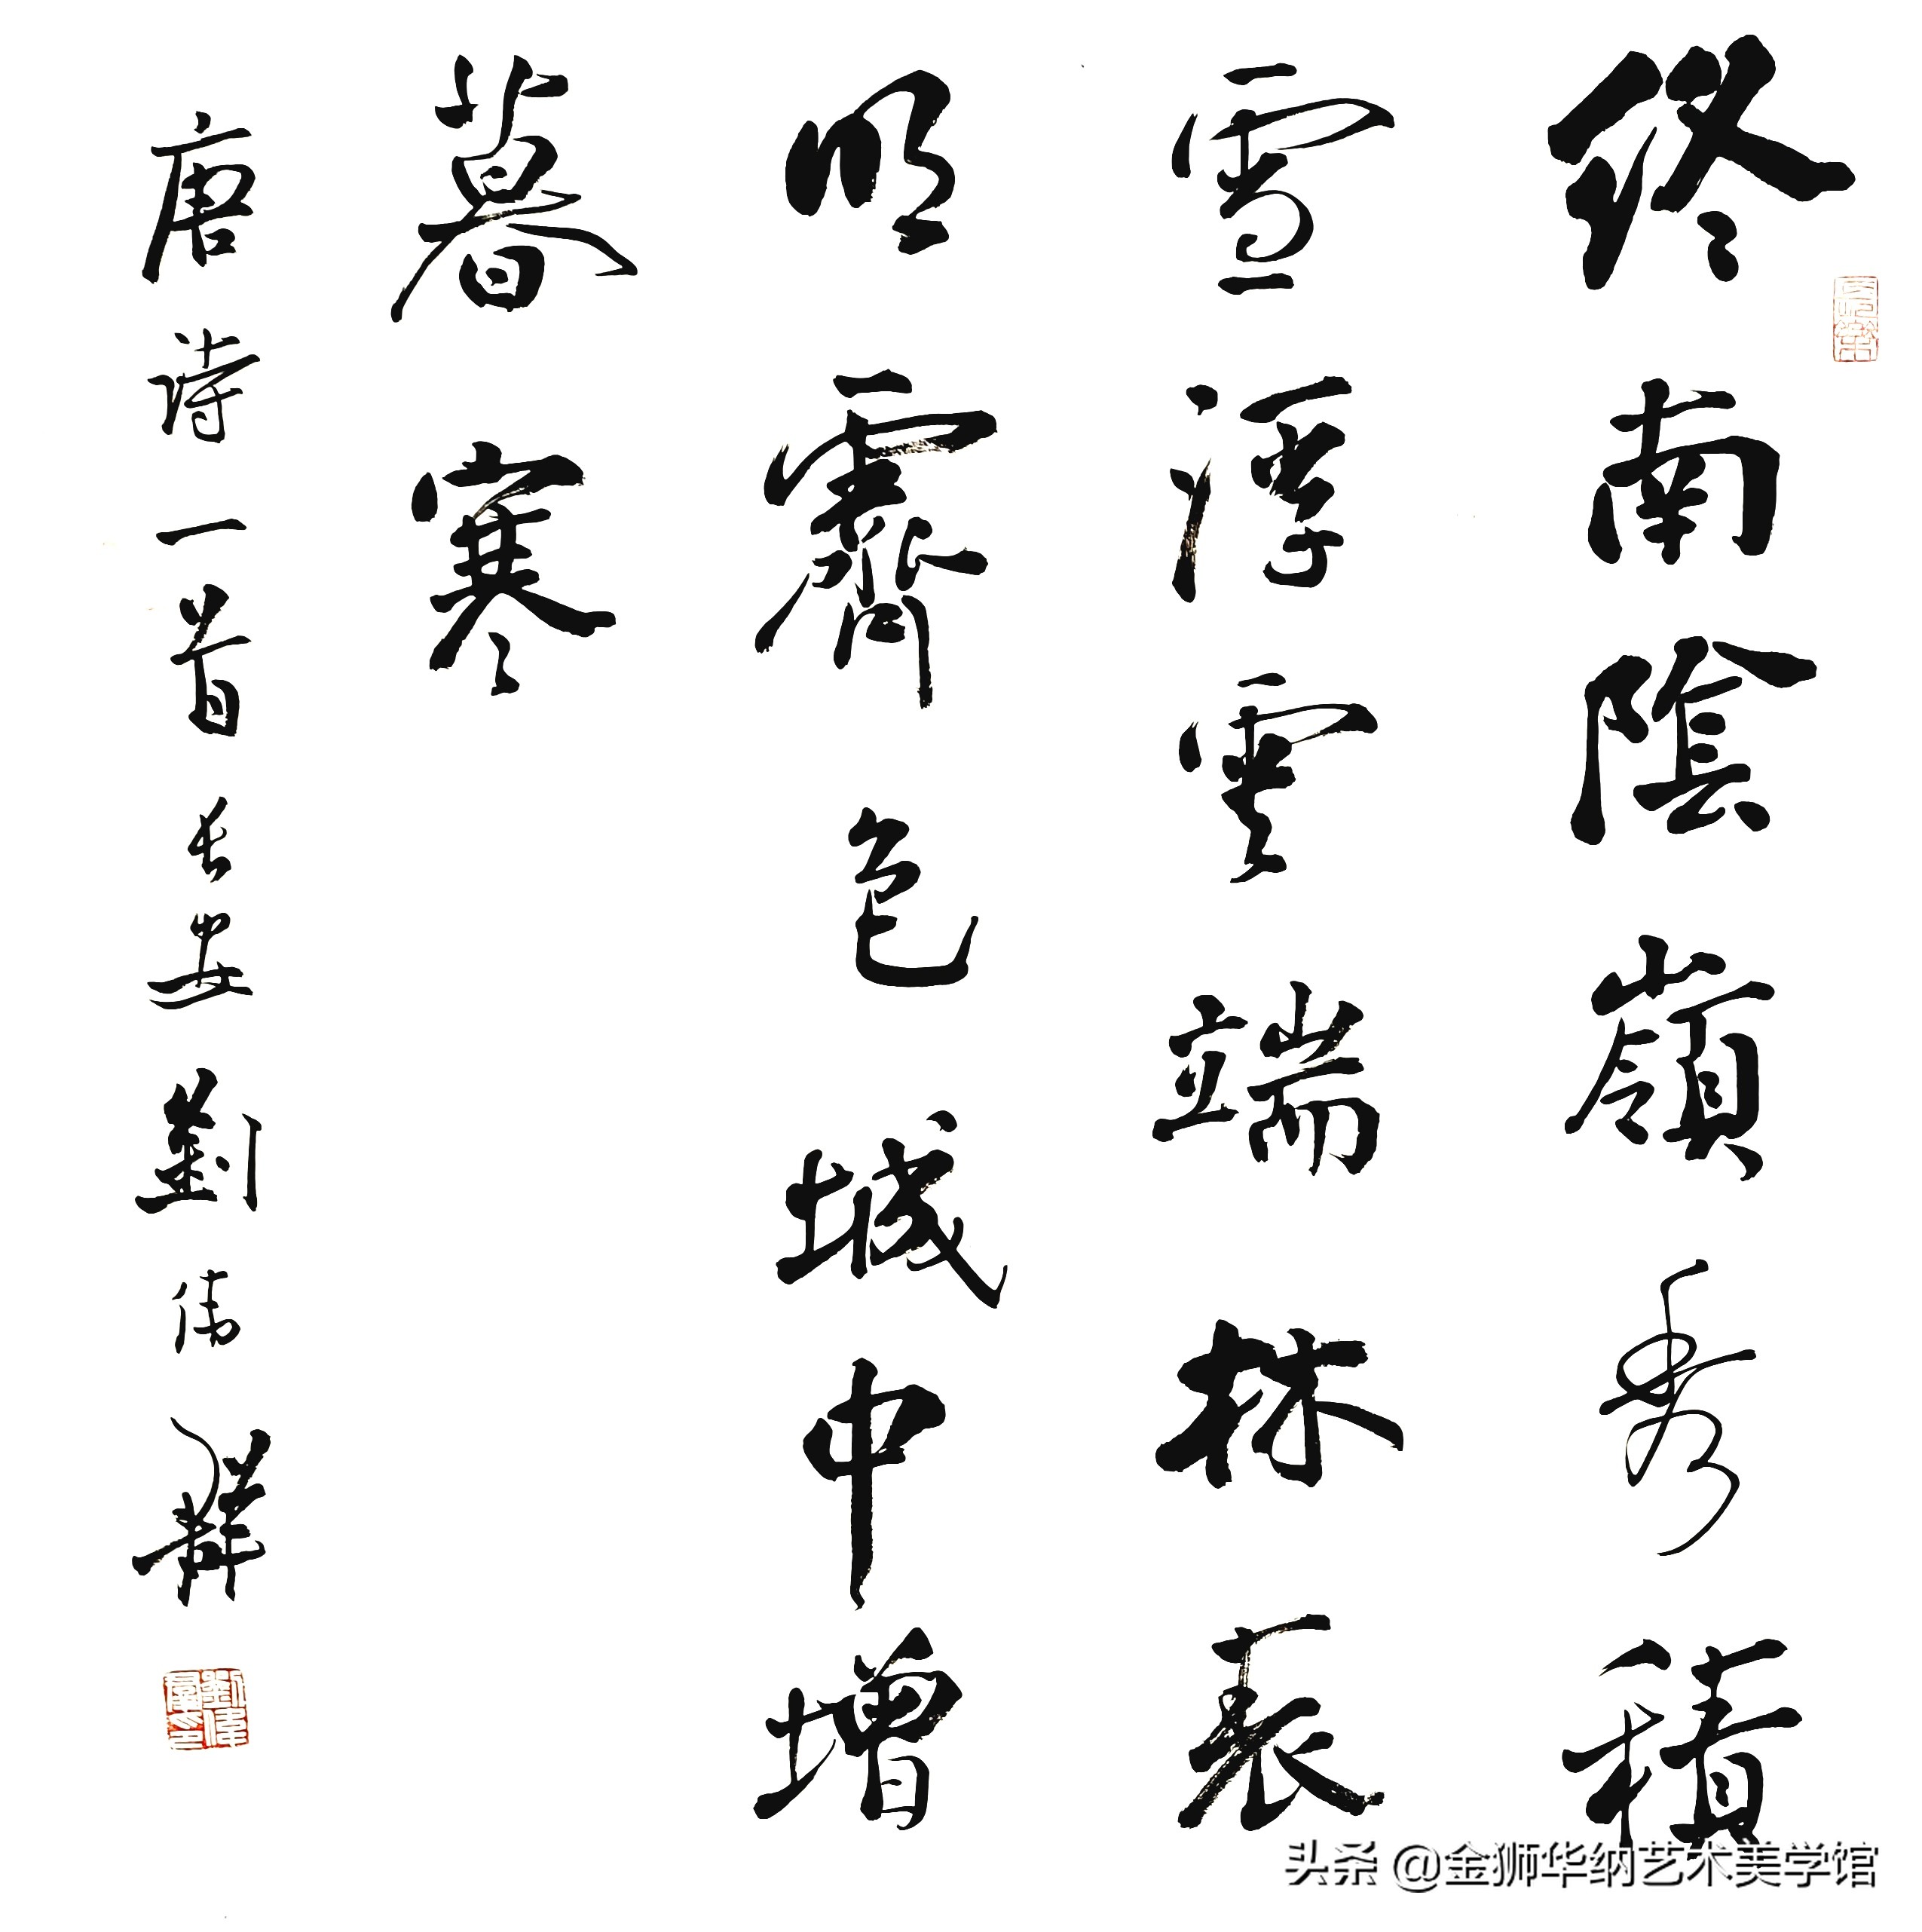 終南陰嶺秀積
雪浮雲端林表
明霽色城中增
暮寒
唐詩一首長安劉偉群
头条 @金狮华纳艺术美学馆